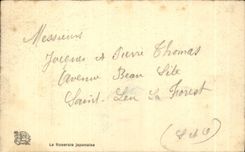 Messieurs
Jacques et Pierre Thomas
Avenue Beau Site
Saint. Leu La Forest
(S & O)
La Roseraie Japonaise